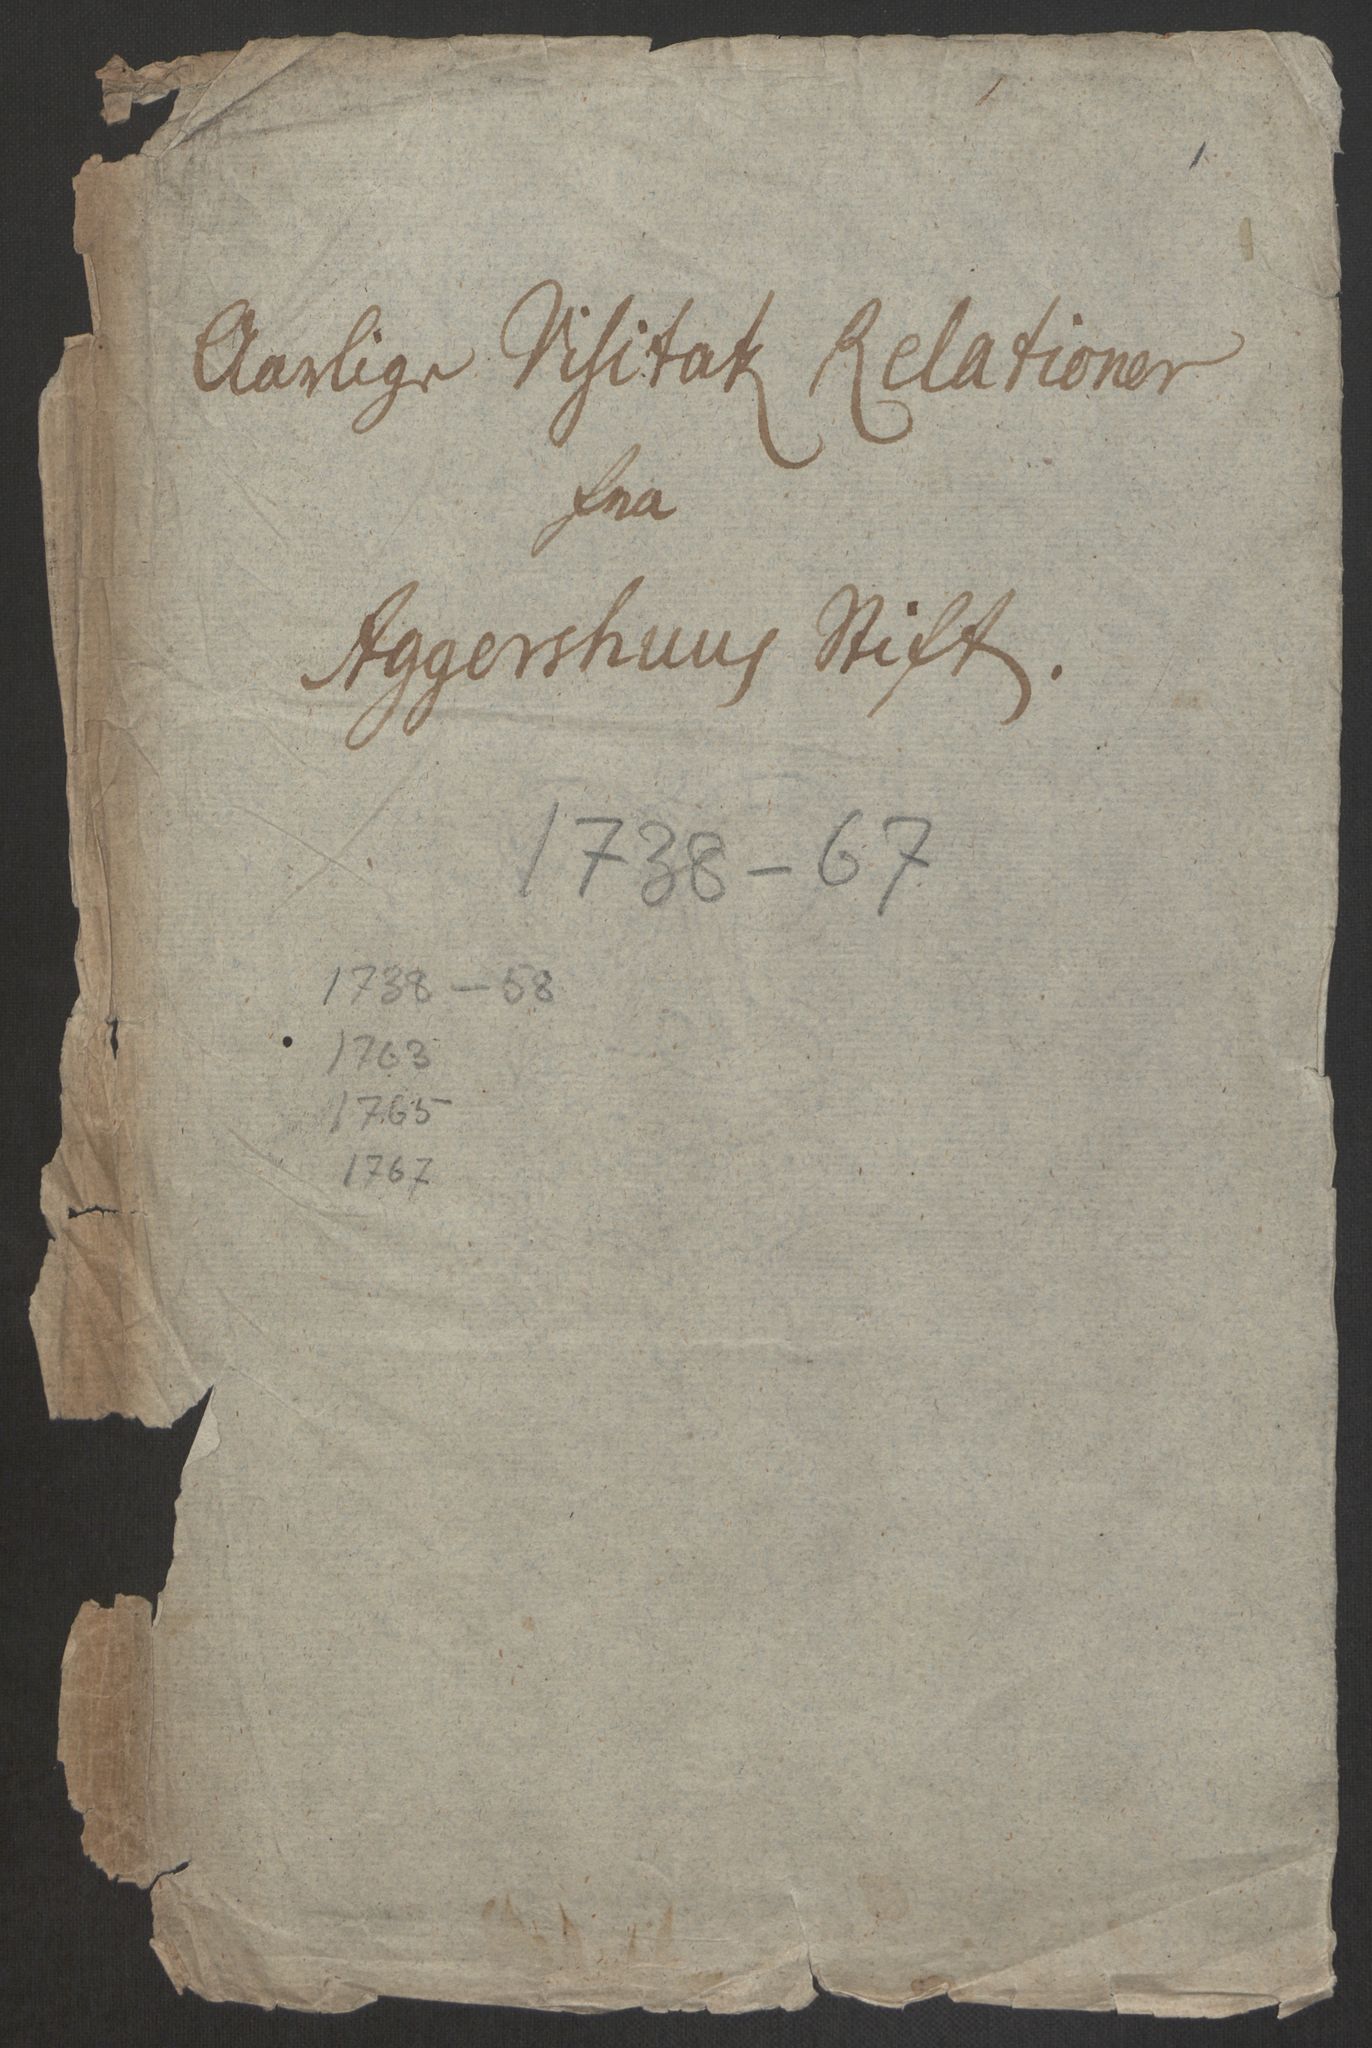 1
Aarlige Visitatz Relationer
fra
Aggershuus Stift.
1738-67
1738-58
1763
1765
1767